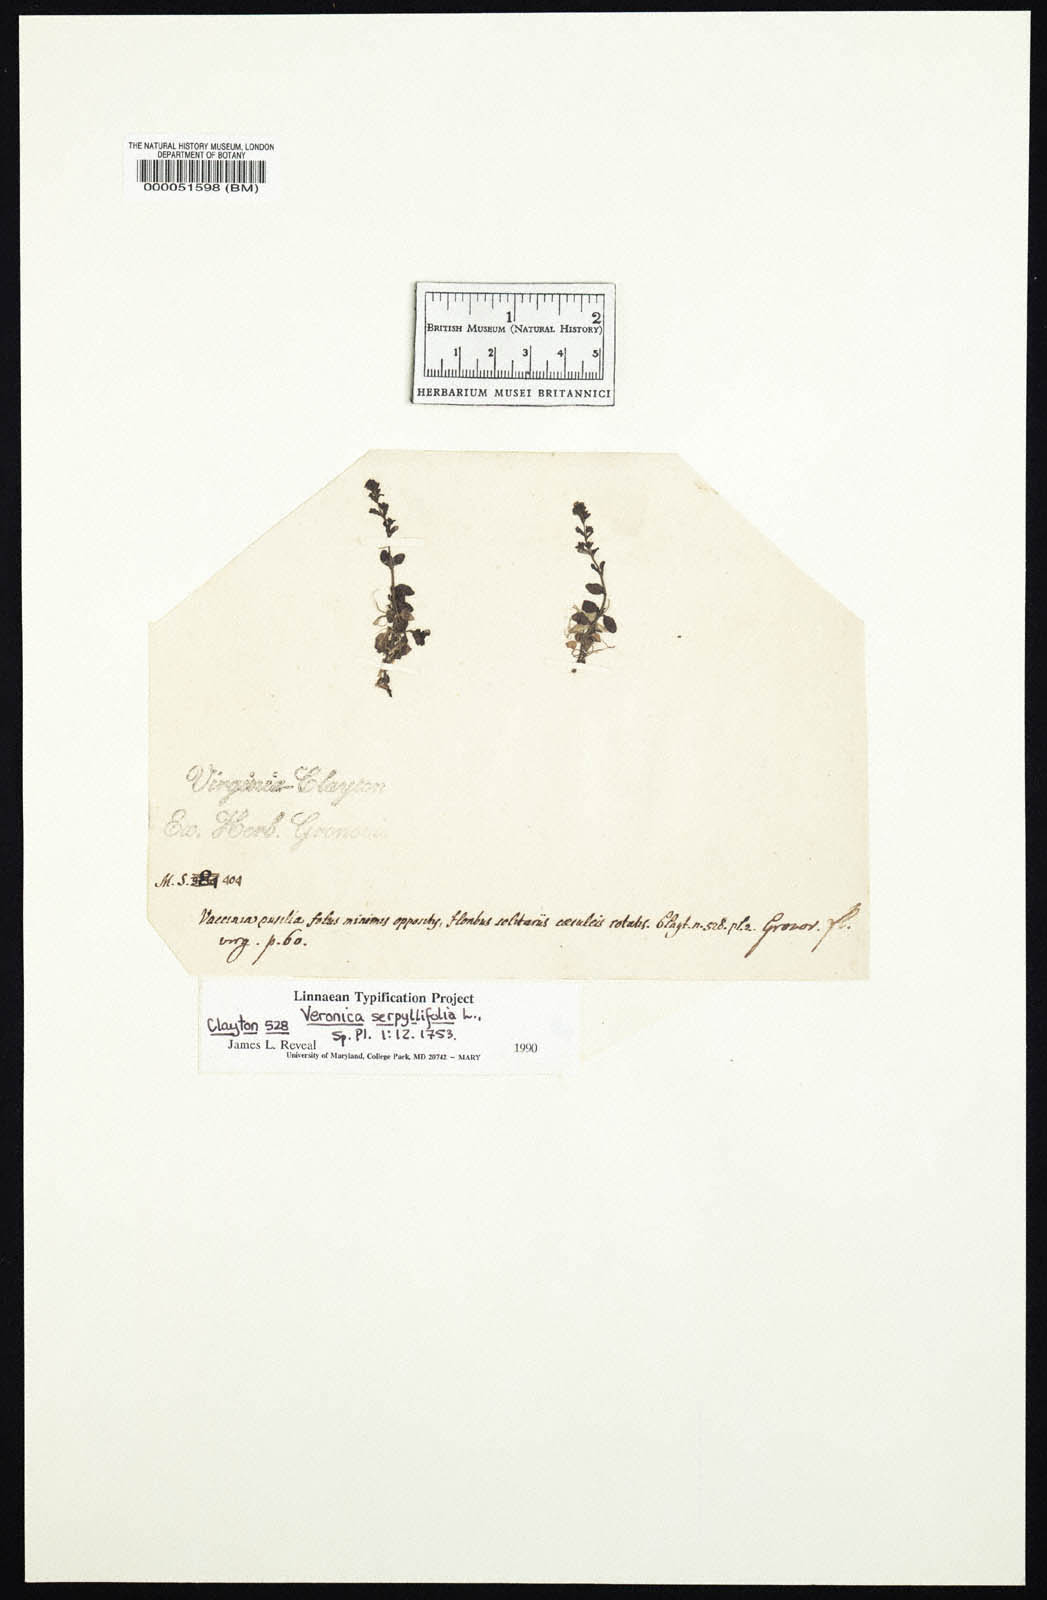 THE NATURAL HISTORY MUSEUM, LONDON
DEPARTMENT OF BOTANY
000051598 (BM)
1 2
BRITISH MUSEUM (NATURAL HISTORY)
1 2 3 4 5
HERBARIUM MUSEI BRITANNICI
Virginia Clayton
Ex. Herb. Gronovii
M. S. 404
pusilla foliis minimis oppositis, floribus solitariis cæruleis rotatis. Clayt. n. 528. pl. 2. Gronov. fl.
virg. p. 60.
Linnaean Typification Project
Clayton 528 Veronica serpyllifolia L.,
Sp. Pl. 1:12. 1753.
James L. Reveal 1990
University of Maryland, College Park, MD 20742 – MARY